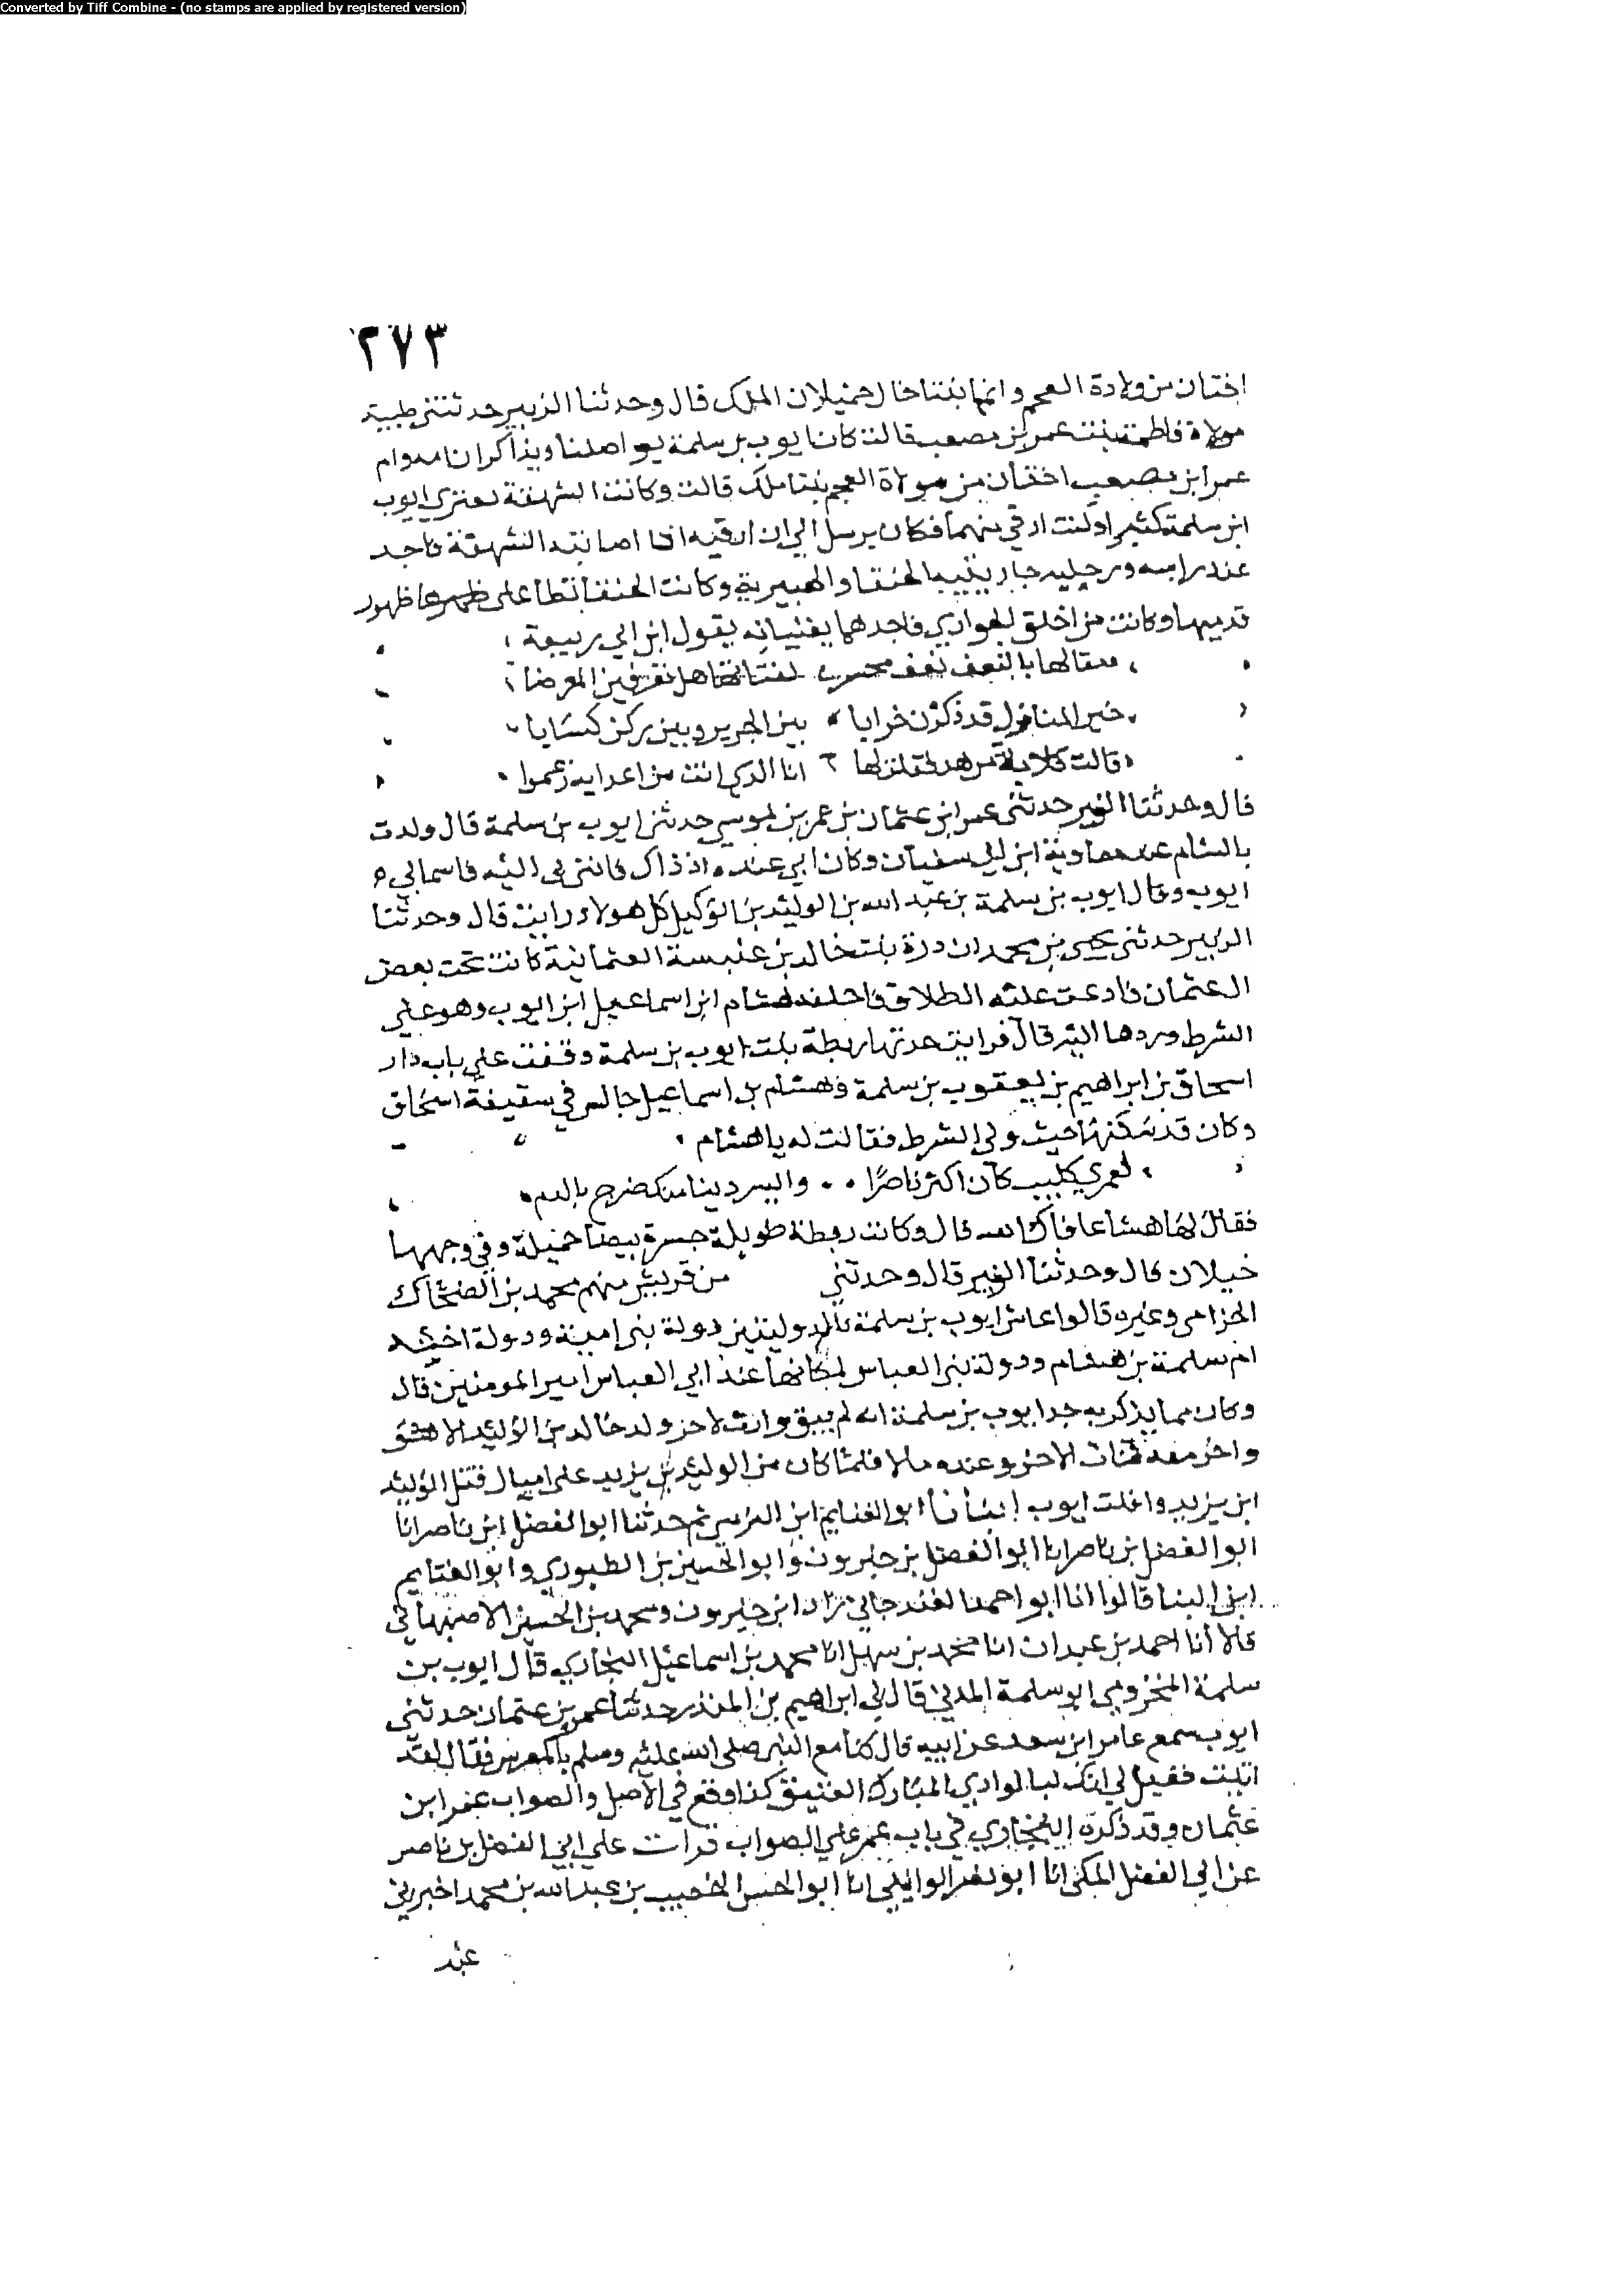 Converted by Tiff Combine - (no stamps are applied by registered version)
٢٧٣
اختان من ولادة العجم وانهما بنتا خال جميلان الملك قال وحدثنا الزبير حدثتني طبية
مولاة فاطمة بنت عمر بن مصعب قالت كان ايوب بن سلمة يواصلنا ويذاكر ان امه وام
عمر ابن مصعب اختان من مولاة العجم بنتا ملك قالت وكانت الشهقة تعتري ايوب
ابن سلمة كثيرا وكنت ارقي منهما فكان يرسل الي ان ارقيه اذا اصابته الشهقة فاجد
عند راسه ورجليه جاريتيه الخنقا والهبيرية وكانت الخنقا تطا على ظهرها ظهور
قدميها وكانت من اخلق الجواري فاجدهما يغنيانه بقول ابن ابي ربيعة
بالنعف نعف محسر لفتاتها هل المعرضا
خير المنازل قد ذكرن خرابا بين الجرير وبين ركن كسابا
قالت كلابة من هذا فقلت لها انا الذي انت من اعدايه زعموا
قال وحدثنا الزبير حدثني عمر ابن عثمان بن عمر بن موسى حدثني ايوب بن سلمة قال ولدت
بالشام عند معاوية ابن ابي سفيان وكان ابي عنده اذ ذاك فانتهى اليه فاسماني
ايوب وقال ايوب بن سلمة بن عبد الله بن الوليد بن الوليد كل هولاء رايت قال وحدثنا
الزبير حدثني يحيى بن محمد ان درة بنت خالد بن عنبسة العثمانية كانت تحت بعض
العثمان فادعت عليه الطلاق فاحلفه هشام ابن اسماعيل ابن ايوب وهو على
الشرط وردها اليه قال فرايت جدتها ريطة بنت ايوب بن سلمة وقفت على باب دار
اسحاق بن ابراهيم بن يعقوب بن سلمة وهشام بن اسماعيل جالس في سقيفة اسحاق
وكان قد سكنها حيث ولي الشرط فقالت له يا هشام
لعمري كليب كان اكثر ناصرا وايسر ذنبا منك ضرج بالدم
فقال لها هشام عافاك الله قال وكانت ريطة طويلة جسرة بيضا جميلة وفي وجهها
خيلان قال وحدثنا الزبير قال وحدثني من قريش منهم محمد بن الضحاك
الحزامي وغيره قالوا عاش ايوب بن سلمة بالدولتين دولة بني امية ودولة اخيه
ام سلمة بن هشام ودولة بني العباس لمكانها عند ابي العباس امير المومنين قال
وكان مما يذكر به جد ايوب بن سلمة انه لم يبق وارث لاخر ولد خالد بن الوليد الا هو
واخر معه فمات الاخر وعنده مالا فلما كان من الوليد بن يزيد على قتل الوليد
ابن يزيد وافلت ايوب انبانا ابو الغنايم ابن النرسي ثم حدثنا ابو الفضل ابن ناصر انا
ابو الفضل ابن ناصر انا ابو الفضل بن خيرون وابو الحسين بن الطيوري وابو الغنايم
ابن البنا قالوا انا ابو احمد الغندجاني زاد ابن خيرون ومحمد بن الحسين الاصبهاني
قالا انا احمد بن عبدان انا محمد بن سهل انا محمد بن اسماعيل البخاري قال ايوب بن
سلمة المخزومي ابو سلمة المدني قال لي ابراهيم بن المنذر حدثنا عمر بن عثمان حدثني
ايوب سمع عامر ابن سعد عن ابيه قال كنا مع النبي صلى الله عليه وسلم بالمعرس فقال لقد
اتيت فقيل لي انك لبالوادي المبارك العقيق كذا وقع في الاصل والصواب عمر ابن
عثمان وقد ذكره البخاري في باب عمر على الصواب قرات على ابي الفضل بن ناصر
عن ابي الفضل المكي انا ابو نصر الوايلي انا ابو الحسن الخصيب بن عبد الله بن محمد اخبرني
عبد